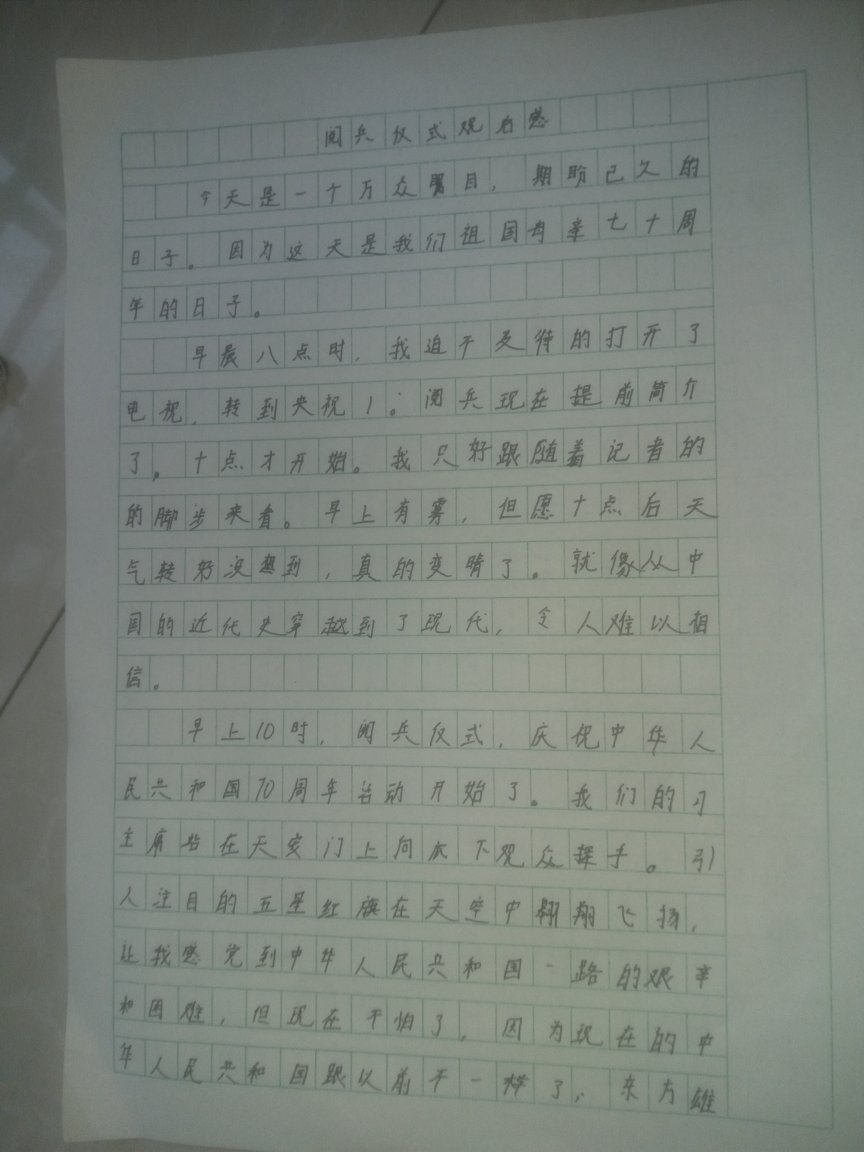 阅兵仪式观后感
今天是一个万众瞩目，期盼已久的
日子。因为这天是我们祖国母亲七十周
年的日子。
早晨八点时，我迫不及待的打开了
电视，转到央视1。阅兵现在提前简介
了。十点才开始。我只好跟随着记者的
的脚步来看。早上有雾，但愿十点后天
气转好没想到，真的变晴了。就像从中
国的近代史穿越到了现代，令人难以相
信。
早上10时，阅兵仪式，庆祝中华人
民共和国70周年活动开始了。我们的习
主席站在天安门上向底下观众挥手。引
人注目的五星红旗在天空中翱翔飞扬，
让我感觉到中华人民共和国一路的艰辛
和困难，但现在不怕了，因为现在的中
华人民共和国跟以前不一样了，东方雄